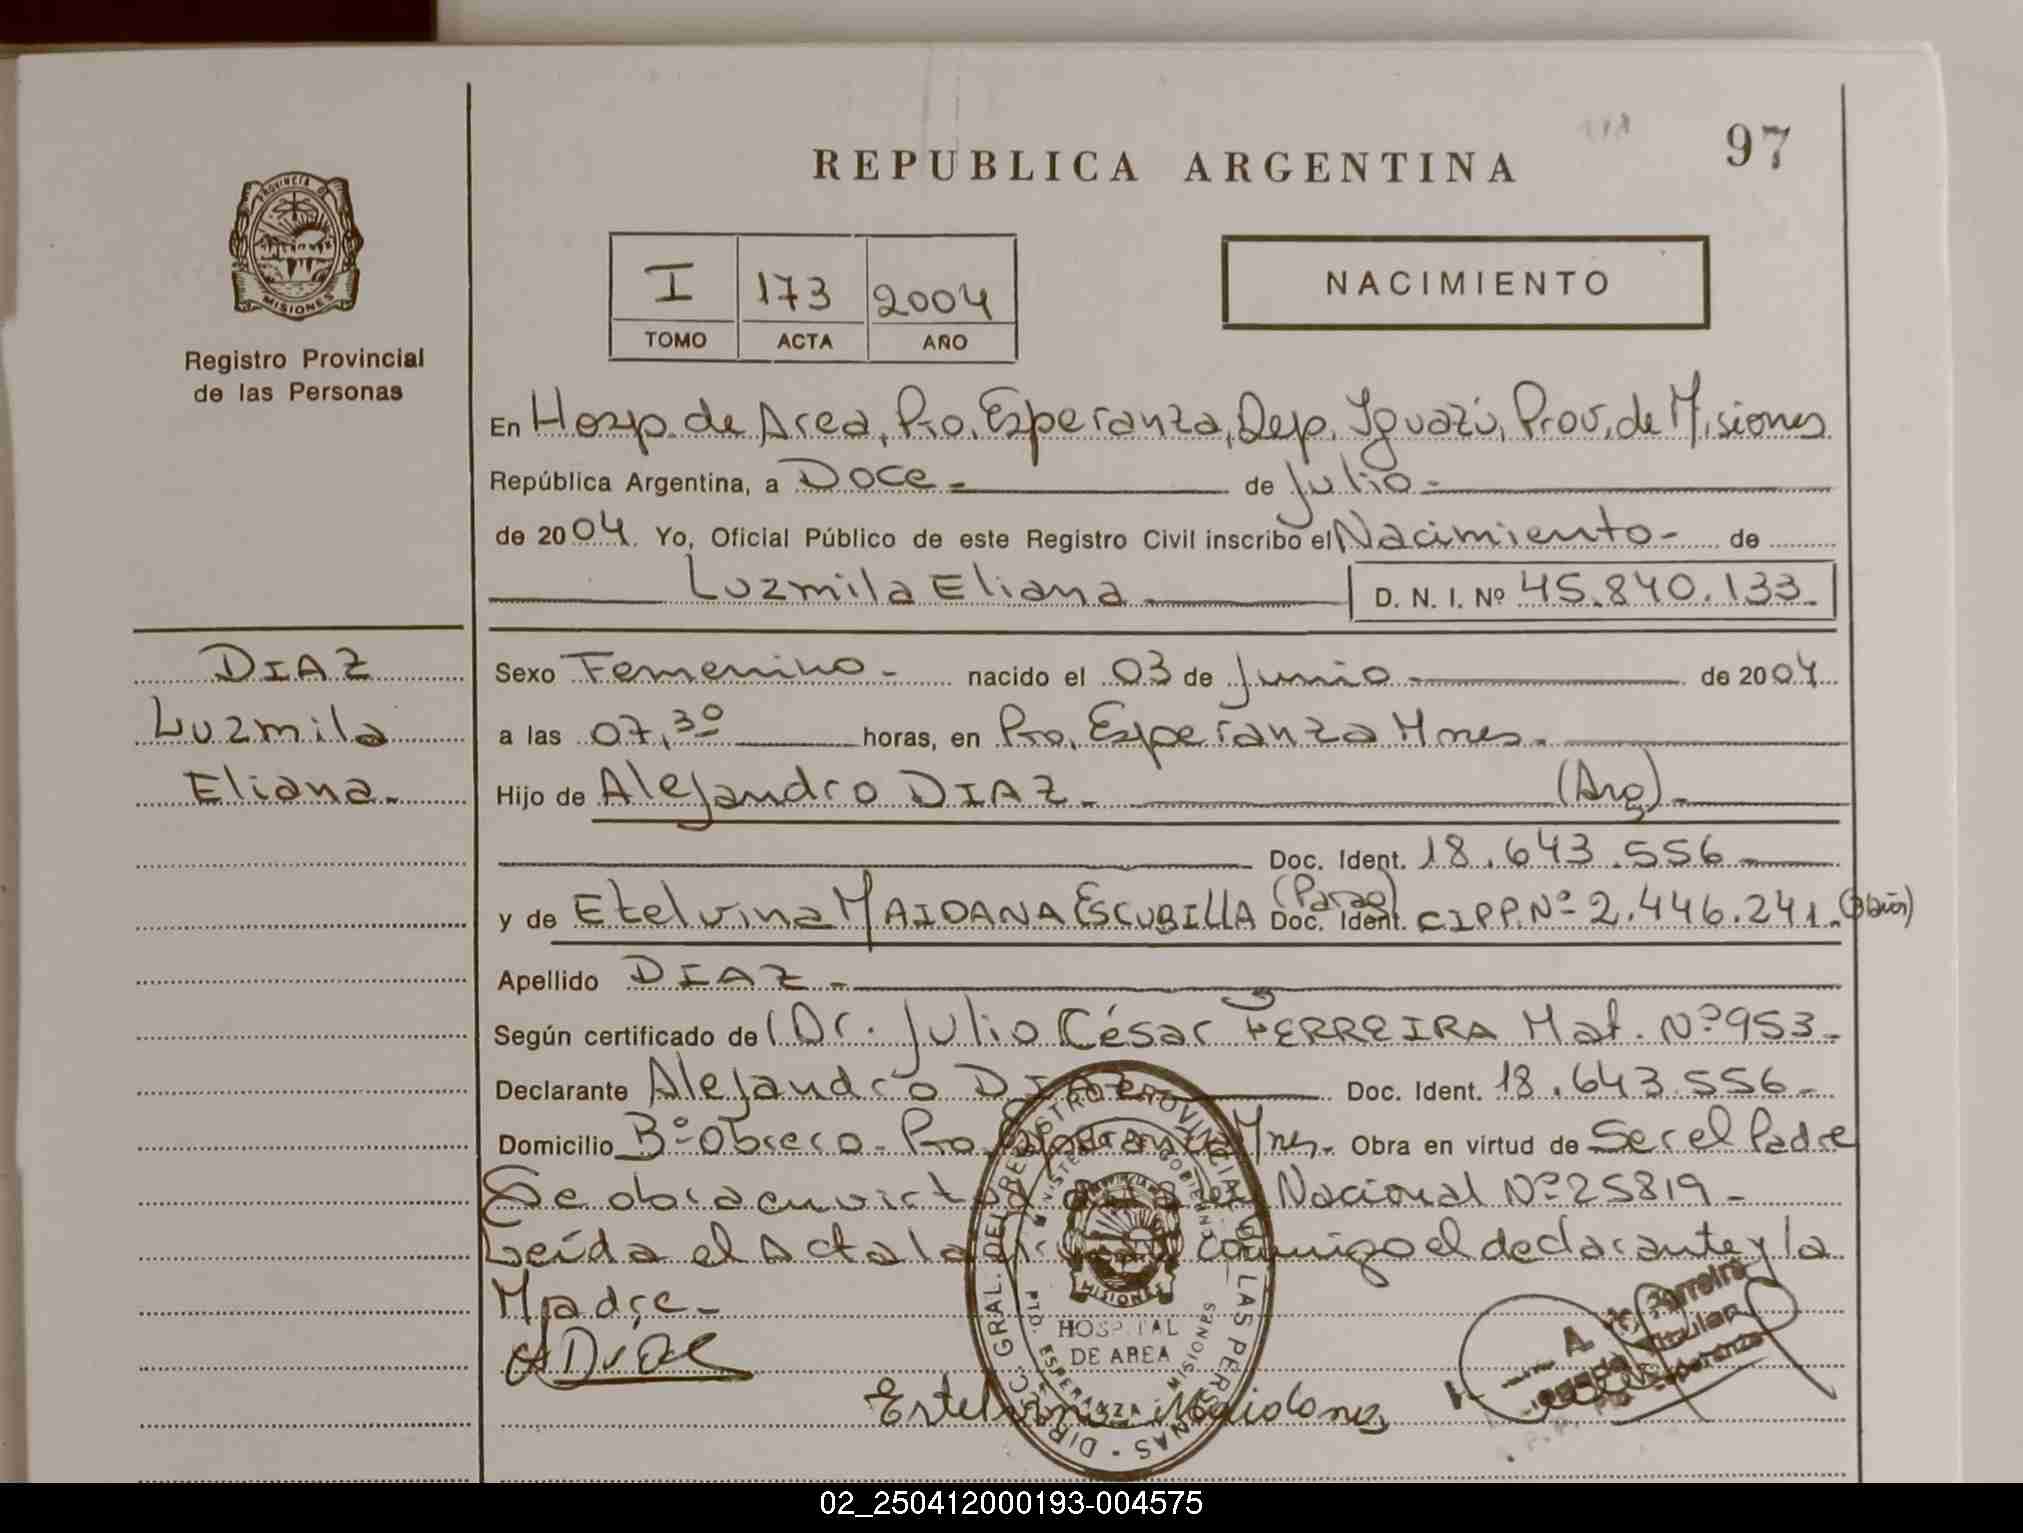 97
REPUBLICA ARGENTINA
PROVINCIA DE
MISIONES
Registro Provincial
de las Personas
I 173 2004
TOMO ACTA AÑO
NACIMIENTO
En Hosp. de Area, Pto. Esperanza, Dep. Iguazú, Prov. de Misiones
República Argentina, a Doce - de Julio -
de 2004. Yo, Oficial Público de este Registro Civil inscribo el Nacimiento - de
Luzmila Eliana D. N. I. Nº 45.840.133-
DIAZ
Luzmila
Eliana-
Sexo Femenino - nacido el 03 de Junio - de 2004
a las 07,30 horas, en Pto. Esperanza Mnes.
Hijo de Alejandro DIAZ - (Arg) -
Doc. Ident. 18.643.556-
y de Etelvina MAIDANA ESCUBILLA (Parag) Doc. Ident. CIPP.Nº 2.446.241.
Apellido DIAZ -
Según certificado de Dr. Julio César FERREIRA Mat. Nº 953-
Declarante Alejandro DIAZ- Doc. Ident. 18.643.556-
Domicilio Bº Obrero - Pto. Esperanza Mnes. Obra en virtud de Ser el Padre
Se obra en virtud Nacional Nº 25819-
Leída el Acta la conmigo el declarante y la
Madre-
A Diaz
DIREC. GRAL. DEL REGISTRO PROVINCIAL DE LAS PERSONAS
MINISTERIO GOBIERNO
PROVINCIA DE
MISIONES
HOSPITAL
DE AREA
PTO. ESPERANZA MISIONES
Ferreira
Titular
02_250412000193-004575